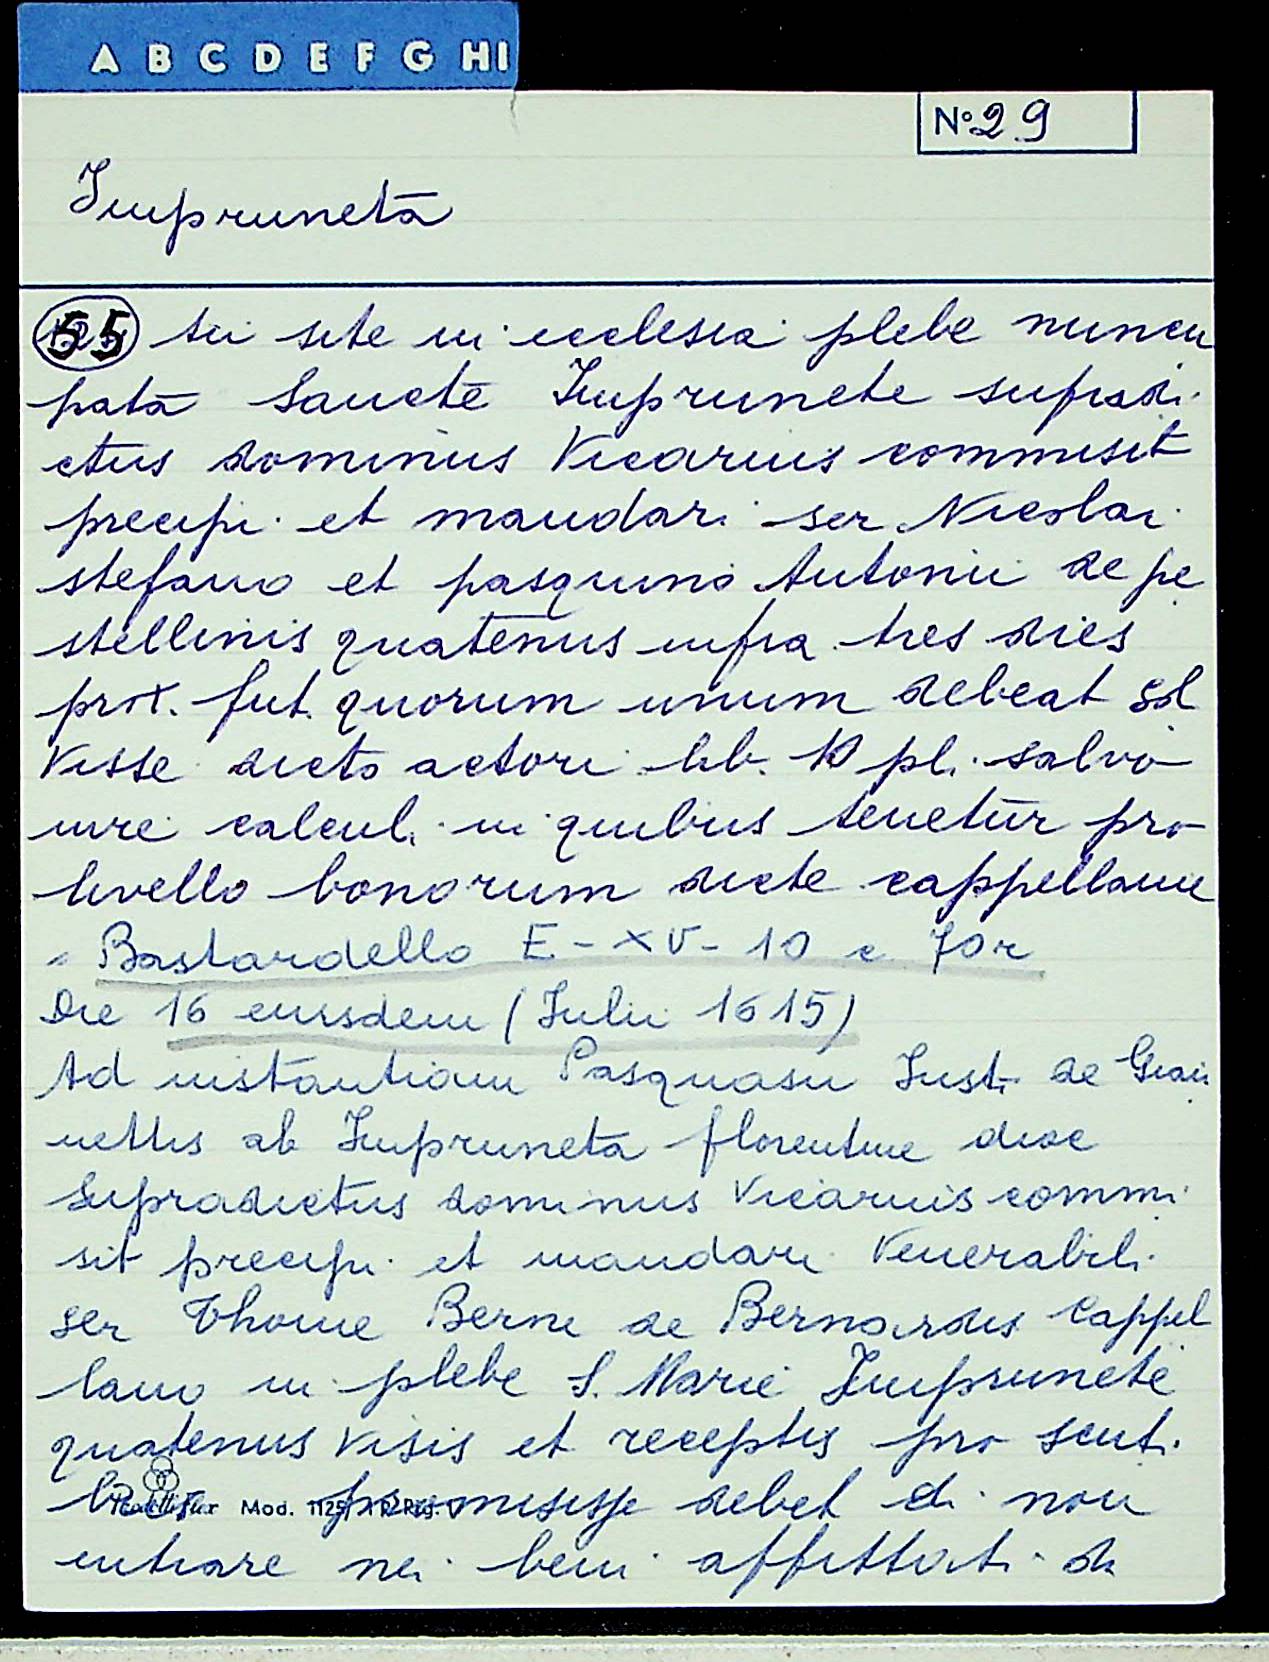 A B C D E F G HI
No 29
Impruneta
55 sii site in ecclesia plebe nuncu
pata Sancte Imprunete supradi
ctus dominus Vicarius commisit
precipi et mandari ser Nicolai
stefano et pasquino Antonii de pe
stellinis quatenus infra tres dies
prox. fut. quorum unum debeat sol
visse dicto actori lib. 10 pl. salvo
iure calculi in quibus tenetur pro
livello bonorum dicte cappellanie
Bastardello E-XV-10 c 70r
Die 16 eiusdem (Iulii 1615)
Ad instantiam Pasquasii Iusti de Gian
nettis ab Impruneta florentine dioc
Supradictus dominus Vicarius commi
sit precipi et mandari Venerabili
ser Thome Berni de Bernardis Cappel
lano in plebe S. Marie Imprunete
quatenus visis et receptis pro sent.
promisisse debet di non
Mod. 1125/1 R/Rig. V
intrare nei beni affittati da